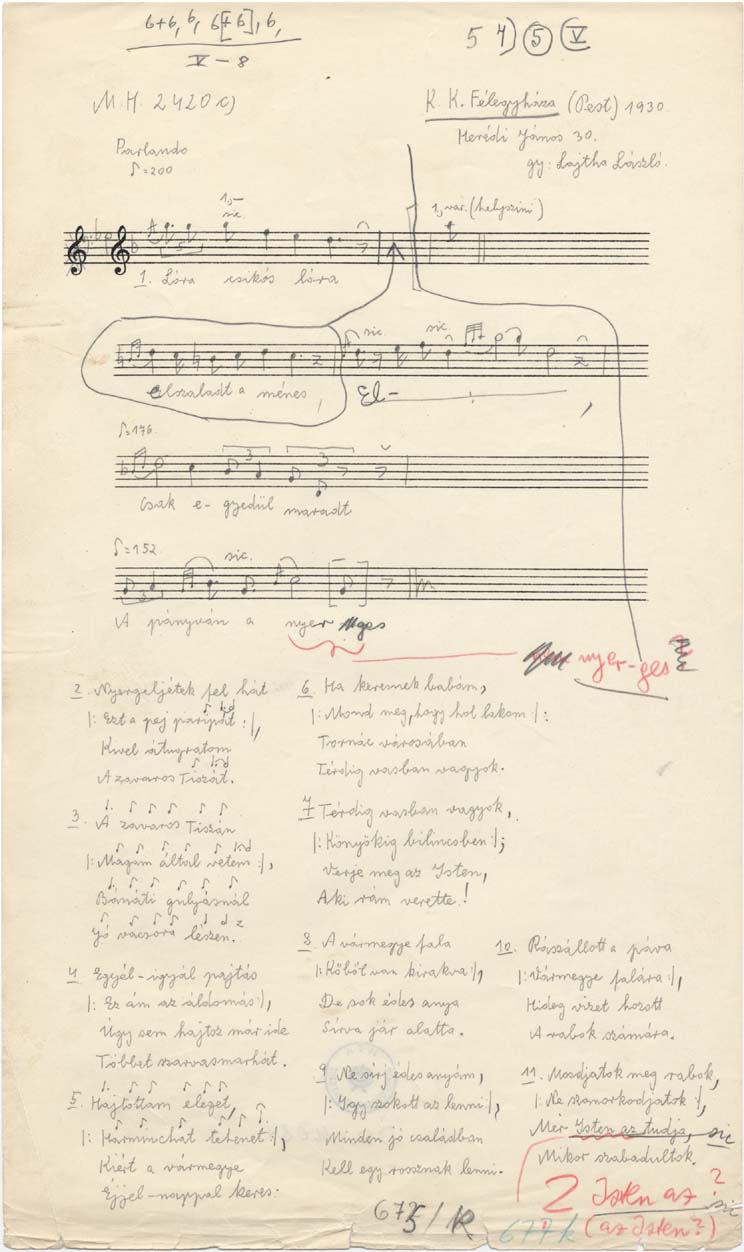 6+6, 6, 6[+6], 6,
V-8
5 4) 5 V
M.H. 2420 c)
K. K. Félegyháza (Pest) 1930.
Herédi János 30.
gy: Lajtha László.
Parlando
♪=200
1,-
sic
1, var. (helyszíni)
5
1. Lóra csikós lóra
sic. sic.
elszaladt a ménes,
El-
♪=176
3 3
Csak e-gyedül maradt
♪=152
sic.
3
A pányván a nyerges
nyer-ges
2. Nyergeljétek fel hát
|: Ezt a pej paripát :|,
Kivel átugratom
A zavaros Tiszát.
3. A zavaros Tiszán
|: Magam által vetem :|,
Bánáti gulyásnál
Jó vacsora lészen.
4. Egyél-igyál pajtás
|: Ez ám az áldomás :|,
Úgy sem hajtsz már ide
Többet szarvasmarhát.
5. Hajtottam eleget,
|: Harminchat tehenet :|,
Kiért a vármegye
Éjjel-nappal keres:
6. Ha keresnek babám,
|: Mond meg, hogy hol lakom :|:
Tornác városában
Térdig vasban vagyok.
7. Térdig vasban vagyok,
|: Könyökig bilincsben :|;
Verje meg az Isten,
Aki rám verette!
8. A vármegye fala
|: Kőből van kirakva :|,
De sok édes anya
Sírva jár alatta.
9. Ne sírj édes anyám,
|: Így szokott az lenni :|,
Minden jó családban
Kell egy rossznak lenni.
10. Rászállott a páva
|: Vármegye falára :|,
Hideg vizet hozott
A rabok számára.
11. Mosdjatok meg rabok,
|: Ne szomorkodjatok :|,
Mér Isten az tudja, sic
Mikor szabadultok.
2 Isten az ? sic
(az Isten?)
675/k
677k